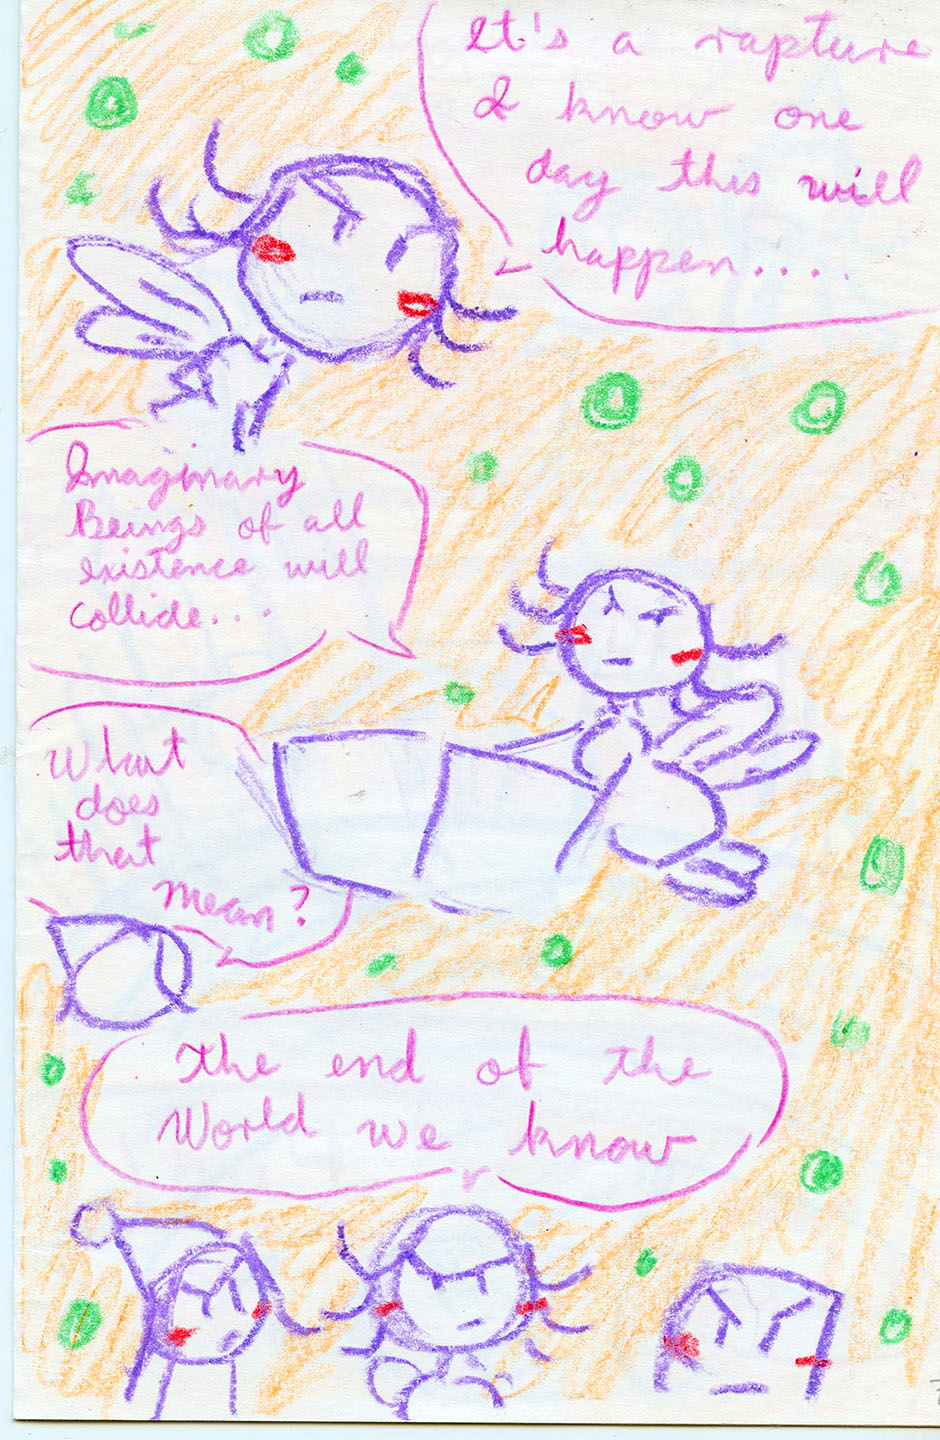 It's a rapture
I know one
day this will
happen....
Imaginary
Beings of all
existence will
collide...
What
does
that
mean?
The end of the
World we know